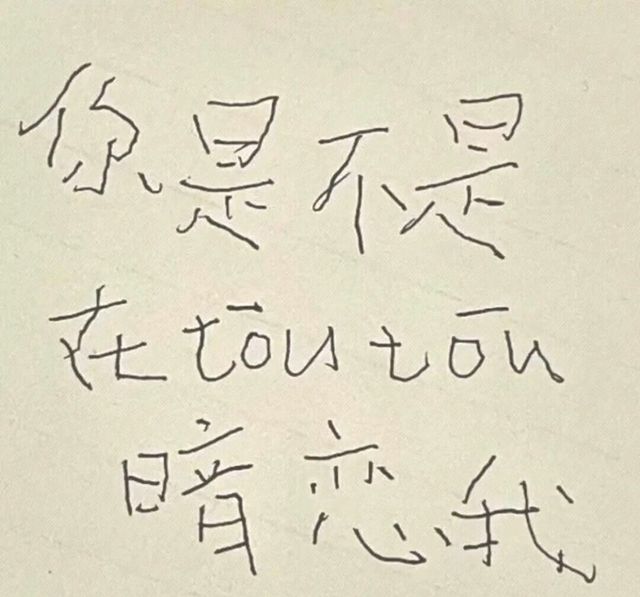 你是不是
在tōutōu
暗恋我